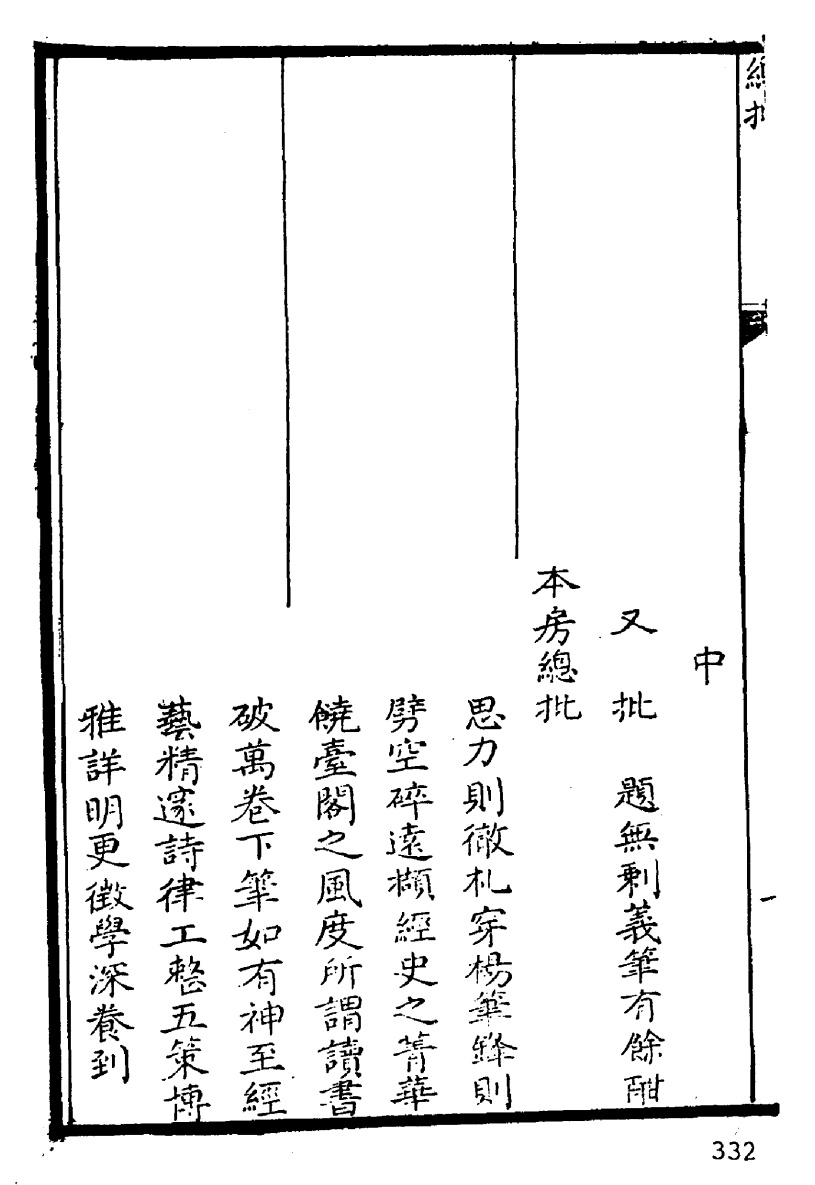 總批
一
中
又批 題無剩義筆有餘酣
本房總批
思力則徹札穿楊筆鋒則
劈空碎遠擷經史之菁華
饒臺閣之風度所謂讀書
破萬卷下筆如有神至經
藝精邃詩律工整五策博
雅詳明更徵學深養到
332